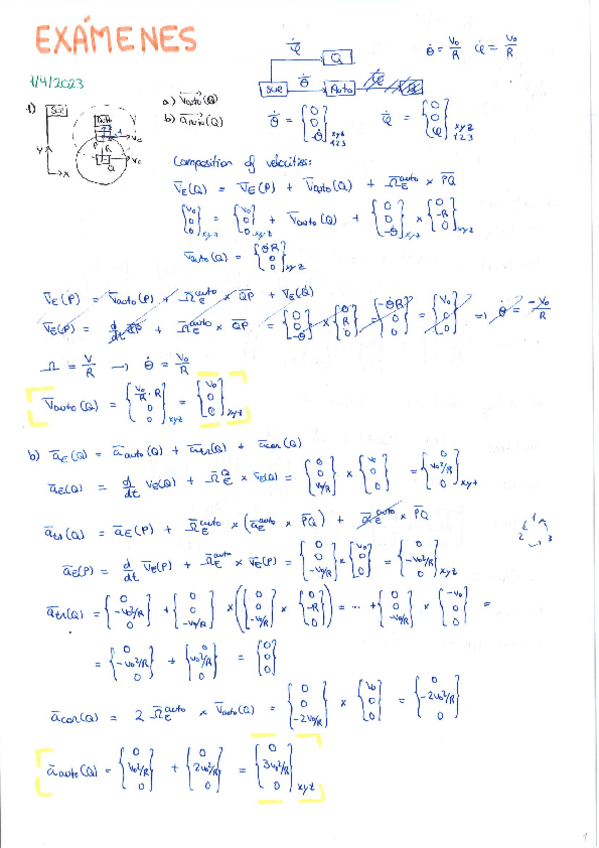 EXÁMENES
1/4/2023
1)
a) v̄auto(Q)
b) āauto(Q)
φ̇
Q
SUE
θ̇
Auto
θ̇ = v₀/R   φ̇ = v₀/R
θ̇ = {0 0 -θ̇}xyz 123   φ̇ = {0 0 φ̇}xyz 123
Composition of velocities:
v̄E(Q) = v̄E(P) + v̄auto(Q) + Ω̄Eauto × P̄Q
{v₀ 0 0}xyz = {v₀ 0 0}xyz + v̄auto(Q) + {0 0 -θ̇}xyz × {0 -R 0}xyz
v̄auto(Q) = {θ̇R 0 0}xyz
v̄E(P) = v̄auto(P) + Ω̄Eauto × Q̄P + v̄E(Q)
v̄E(P) = d/dt Q̄P + Ω̄Eauto × Q̄P = {0 0 -θ̇} × {0 R 0} = {-θ̇R 0 0} = {v₀ 0 0} → θ̇ = -v₀/R
Ω = v/R → θ̇ = v₀/R
v̄auto(Q) = {v₀/R · R 0 0}xyz = {v₀ 0 0}xyz
b) āE(Q) = āauto(Q) + ātr(Q) + ācor(Q)
āE(Q) = d/dt v̄E(Q) + Ω̄EQ × v̄E(Q) = {0 0 v₀/R} × {v₀ 0 0} = {0 v₀²/R 0}xyz
ātr(Q) = āE(P) + Ω̄Eauto × (Ω̄Eauto × P̄Q) + ᾱEauto × P̄Q
āE(P) = d/dt v̄E(P) + Ω̄Eauto × v̄E(P) = {0 0 -v₀/R} × {v₀ 0 0} = {0 -v₀²/R 0}xyz
1 2 3
ātr(Q) = {0 -v₀²/R 0} + {0 0 -v₀/R} × ({0 0 -v₀/R} × {0 -R 0}) = ... + {0 0 -v₀/R} × {-v₀ 0 0} =
= {0 -v₀²/R 0} + {0 v₀²/R 0} = {0 0 0}
ācor(Q) = 2 Ω̄Eauto × v̄auto(Q) = {0 0 -2v₀/R} × {v₀ 0 0} = {0 -2v₀²/R 0}
āauto(Q) = {0 v₀²/R 0} + {0 2v₀²/R 0} = {0 3v₀²/R 0}xyz
1